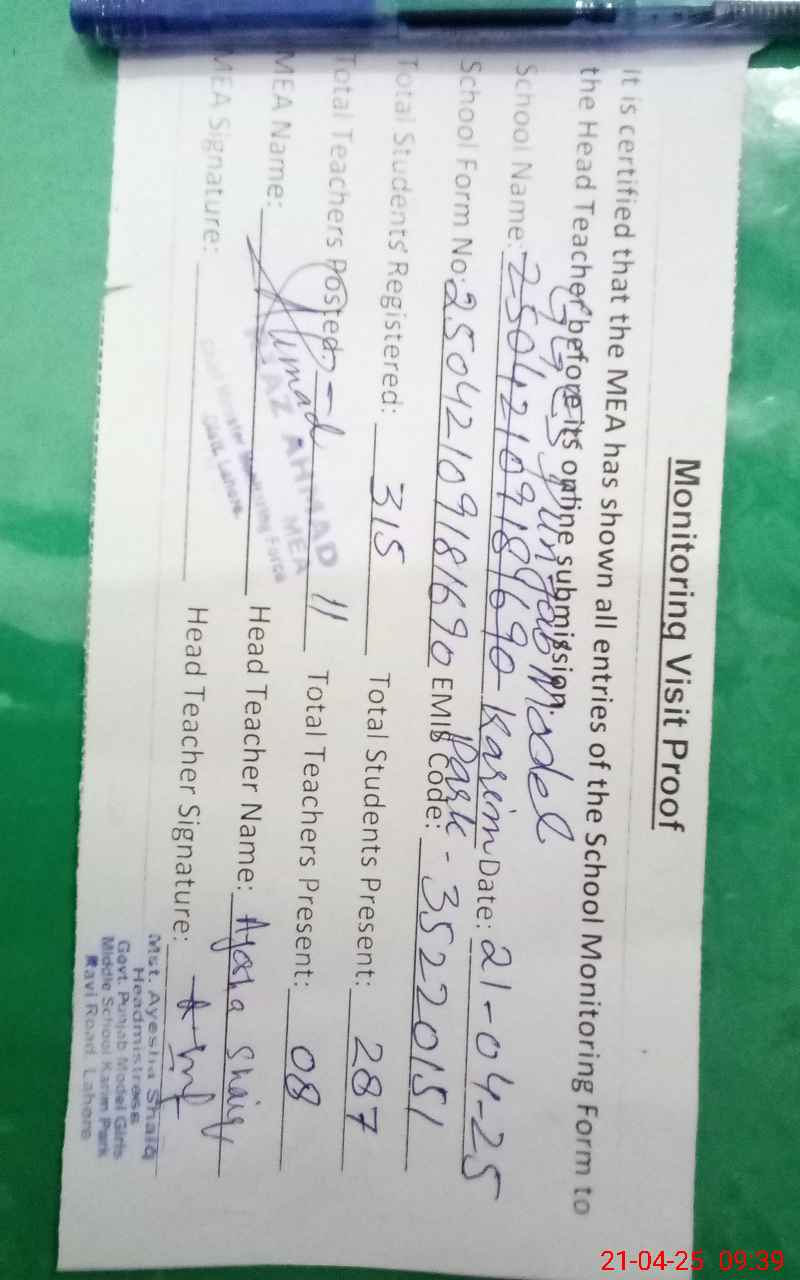 Monitoring Visit Proof
It is certified that the MEA has shown all entries of the School Monitoring Form to
the Head Teacher before its online submission.
Punjab Model
School Name: 25042109181690 Karim Date: 21-04-25
Park -
School Form No: 25042109181690 EMIS Code: 35220151
Total Students' Registered: 315 Total Students Present: 287
Total Teachers Posted: 11 Total Teachers Present: 08
MEA Name: Ahmad Head Teacher Name: Ayesha Shaiq
MEA Signature: Head Teacher Signature:
AHMAD
MEA
Chief Minister Monitoring Force
Distt. Lahore
Mst. Ayesha Shaiq
Headmistress
Govt. Punjab Model Girls
Middle School Karim Park
Ravi Road, Lahore
21-04-25 09:39